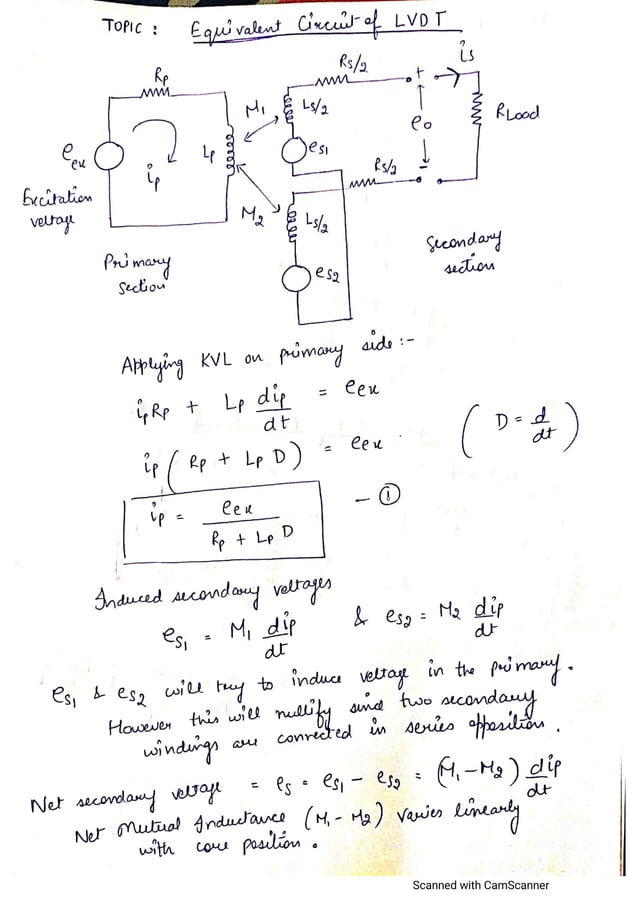 TOPIC : Equivalent Circuit of LVDT
Rp
Rs/2
is
+
M1
Ls/2
eo
RLoad
Lp
es1
eex
ip
Rs/2
-
Excitation
voltage
M2
Ls/2
Secondary
section
Primary
Section
es2
Applying KVL on primary side :-
ip Rp + Lp dip/dt = eex
ip ( Rp + Lp D ) = eex
( D = d/dt )
ip = eex / Rp + Lp D
- ①
Induced secondary voltages
es1 = M1 dip/dt & es2 = M2 dip/dt
es1 & es2 will try to induce voltage in the primary.
However this will nullify since two secondary
windings are connected in series opposition.
Net secondary voltage = es = es1 - es2 = (M1 - M2) dip/dt
Net Mutual Inductance (M1 - M2) varies linearly
with core position.
Scanned with CamScanner